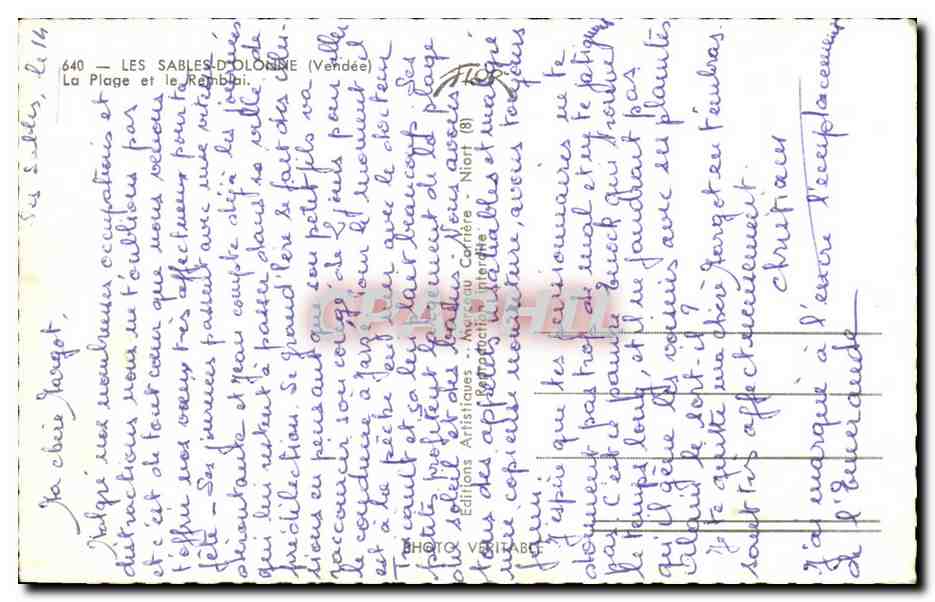 640 — LES SABLES-D'OLONNE (Vendée)
La Plage et le Remblai.
Les Sables, le 14
Ma chère Margot,
Malgré nos nombreuses occupations et
distractions nous ne t'oublions pas
et c'est de tout cœur que nous venons
t'offrir nos vœux très affectueux pour ta
fête - Les journées passent avec une vitesse
déroutante et Jean compte déjà les journées
qui lui restent à passer dans sa ville de
prédilection. Le grand Père se fait des illu-
sions en pensant que son petit fils va
raccourcir son congé de 2 jours pour aller
le conduire à Margot. Pour le moment
est à la pêche en mer avec le docteur
et sa
petits profitent largement de la plage
du soleil et des bains. Nous avons
tous des appétits insatiables et malgré
une copieuse nourriture, avons toujours
faim
J'espère que tes pensionnaires ne te
donnent pas trop de mal et ne te fatiguent
pas. C'est ce pauvre qui doit trouver
le temps long, et il ne faudrait pas
qu'il gêne les voisins avec ses plaintes
le sort-il?
Je te quitte ma chère Margot en t'embras-
sant très affectueusement
Christiane
J'ai marqué à l'encre l'emplacement
de l'Emeraude
Editions Artistiques - Marceau Carrière - Niort (8)
Reproduction interdite
PHOTO VÉRITABLE
CPAPHIL